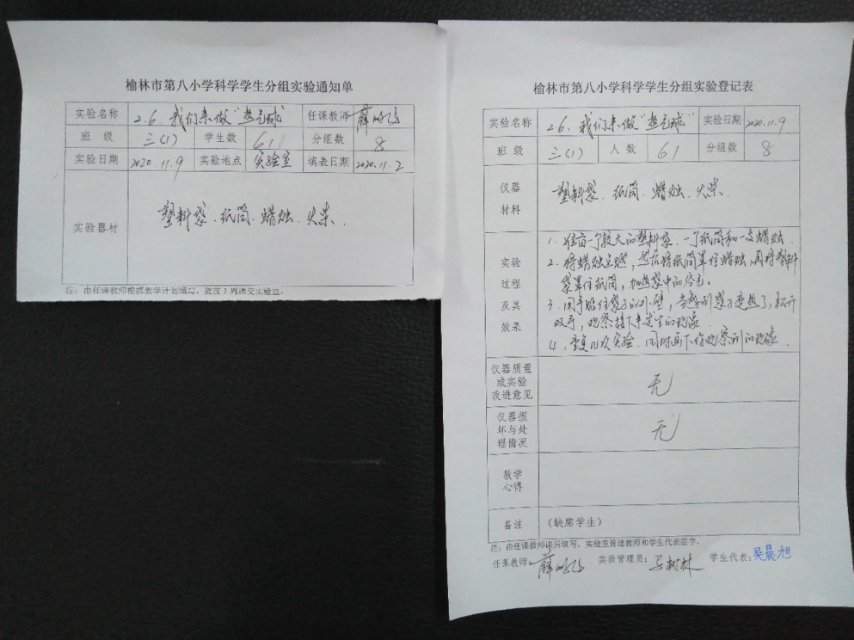 榆林市第八小学科学学生分组实验通知单
实验名称 2.6.我们来做"热气球" 任课教师
班级 三(1) 学生数 61 分组数 8
实验日期 2020.11.9 实验地点 实验室 填表日期 2020.11.2
实验器材 塑料袋.纸筒.蜡烛.火柴.
注:由任课教师根据教学计划填写,提前1周送交实验室。
榆林市第八小学科学学生分组实验登记表
实验名称 2.6.我们来做"热气球" 实验日期 2020.11.9
班级 三(1) 人数 61 分组数 8
仪器
材料
塑料袋.纸筒.蜡烛.火柴.
实验
过程
及其
效果
1.准备一个较大的塑料袋.一个纸筒和一支蜡烛.
2.将蜡烛点燃,然后将纸筒罩住蜡烛,再将塑料
袋罩住纸筒,加热袋中的空气。
3.用手贴住袋子的外壁,当感到袋子变热了,松开
双手,观察接下来发生的现象
4.重复几次实验.同时画下你观察到的现象.
仪器质量
或实验
改进意见
无
仪器损
坏与处
理情况
无
教学
心得
备注 (缺席学生)
注:由任课教师课后填写,实验室管理教师和学生代表签字。
任课教师: 实验管理员: 学生代表:吴晨旭